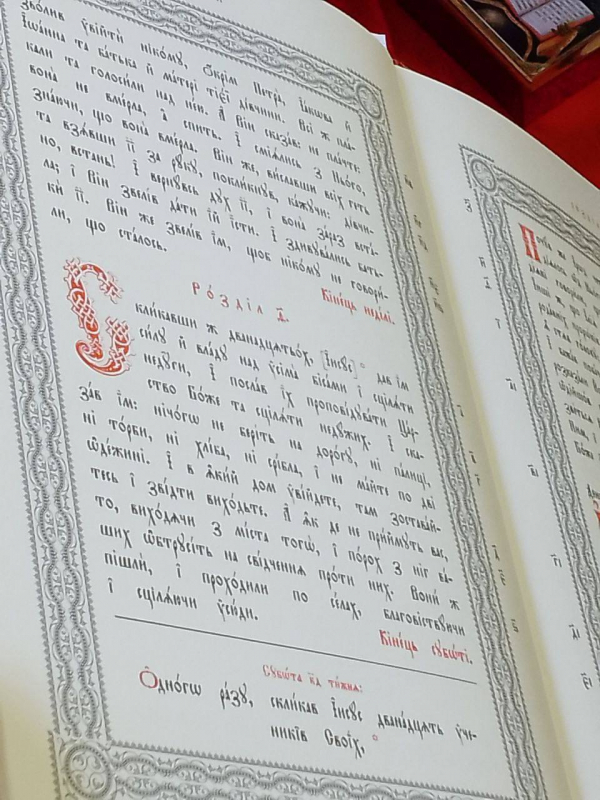 зволив ѹвійтѝ нікомѹ, Ѻкрім Петра̀, І҆а́кова й
І҆ѡа́нна та ба́тька й ма́тері тіє́ї дівчини. Всі ж пла́-
кали та голоси́ли над не́ю. А҆ Він сказа́в: не пла́чте:
вона̀ не вме́рла, а҆ спить. І҆ смія́лись з Ньо́го,
зна́ючи, що вона̀ вме́рла. Він же, ви́славши всіх геть
та взя́вши її за ру́кѹ, покли́кнѹв, ка́жѹчи: ді́вчи-
но, встань! І҆ вернѹ́всь дѹх її, і҆ вона̀ за́раз вста́-
ла; і҆ Він звелі́в да́ти їй ї́сти. І҆ здивѹва́лись бать-
ки́ її. Він же звелі́в їм, щоб ніко́мѹ не говори́-
ли, що ста́лось.
Кіне́ць неді́лі.
Ро́зділ ѳ҃.
Скли́кавши ж двана́дцятьох, [І҆исѹ́с] дав їм
си́лѹ й вла́дѹ над ѹсіма̀ біса́ми і҆ сціля́ти
недѹ́ги, і҆ посла́в їх проповідѹва́ти Ца́р-
ство Бо́же та сціля́ти недѹ́жих. І҆ ска-
за́в їм: нічо́гѡ не бері́ть на доро́гѹ, ні па́лиці,
ні то́рби, ні хлі́ба, ні срі́бла, і҆ не ма́йте по дві
ѡ҆де́жині. І҆ в я҆ки́й дом ѹві́йдете, там зостава́й-
тесь і҆ зві́дти вихо́дьте. А҆ я҆к де не при́ймѹть вас,
то, вихо́дячи з мі́ста тогѡ̀, і҆ по́рох з ніг ва́-
ших ѡ҆бтрѹсі́ть на сві́дчення про́ти них. Вони́ ж
пішли́, і҆ прохо́дили по се́лах, благовіствѹ́ючи
і҆ сціля́ючи ѹсю́ди.
Кіне́ць сѹбо́ти.
Сѹбо́та к҃а ти́жня:
Ѻ҆дно́гѡ ра́зѹ, склика́в І҆исѹ́с двана́дцять ѹче-
никі́в Свої́х,